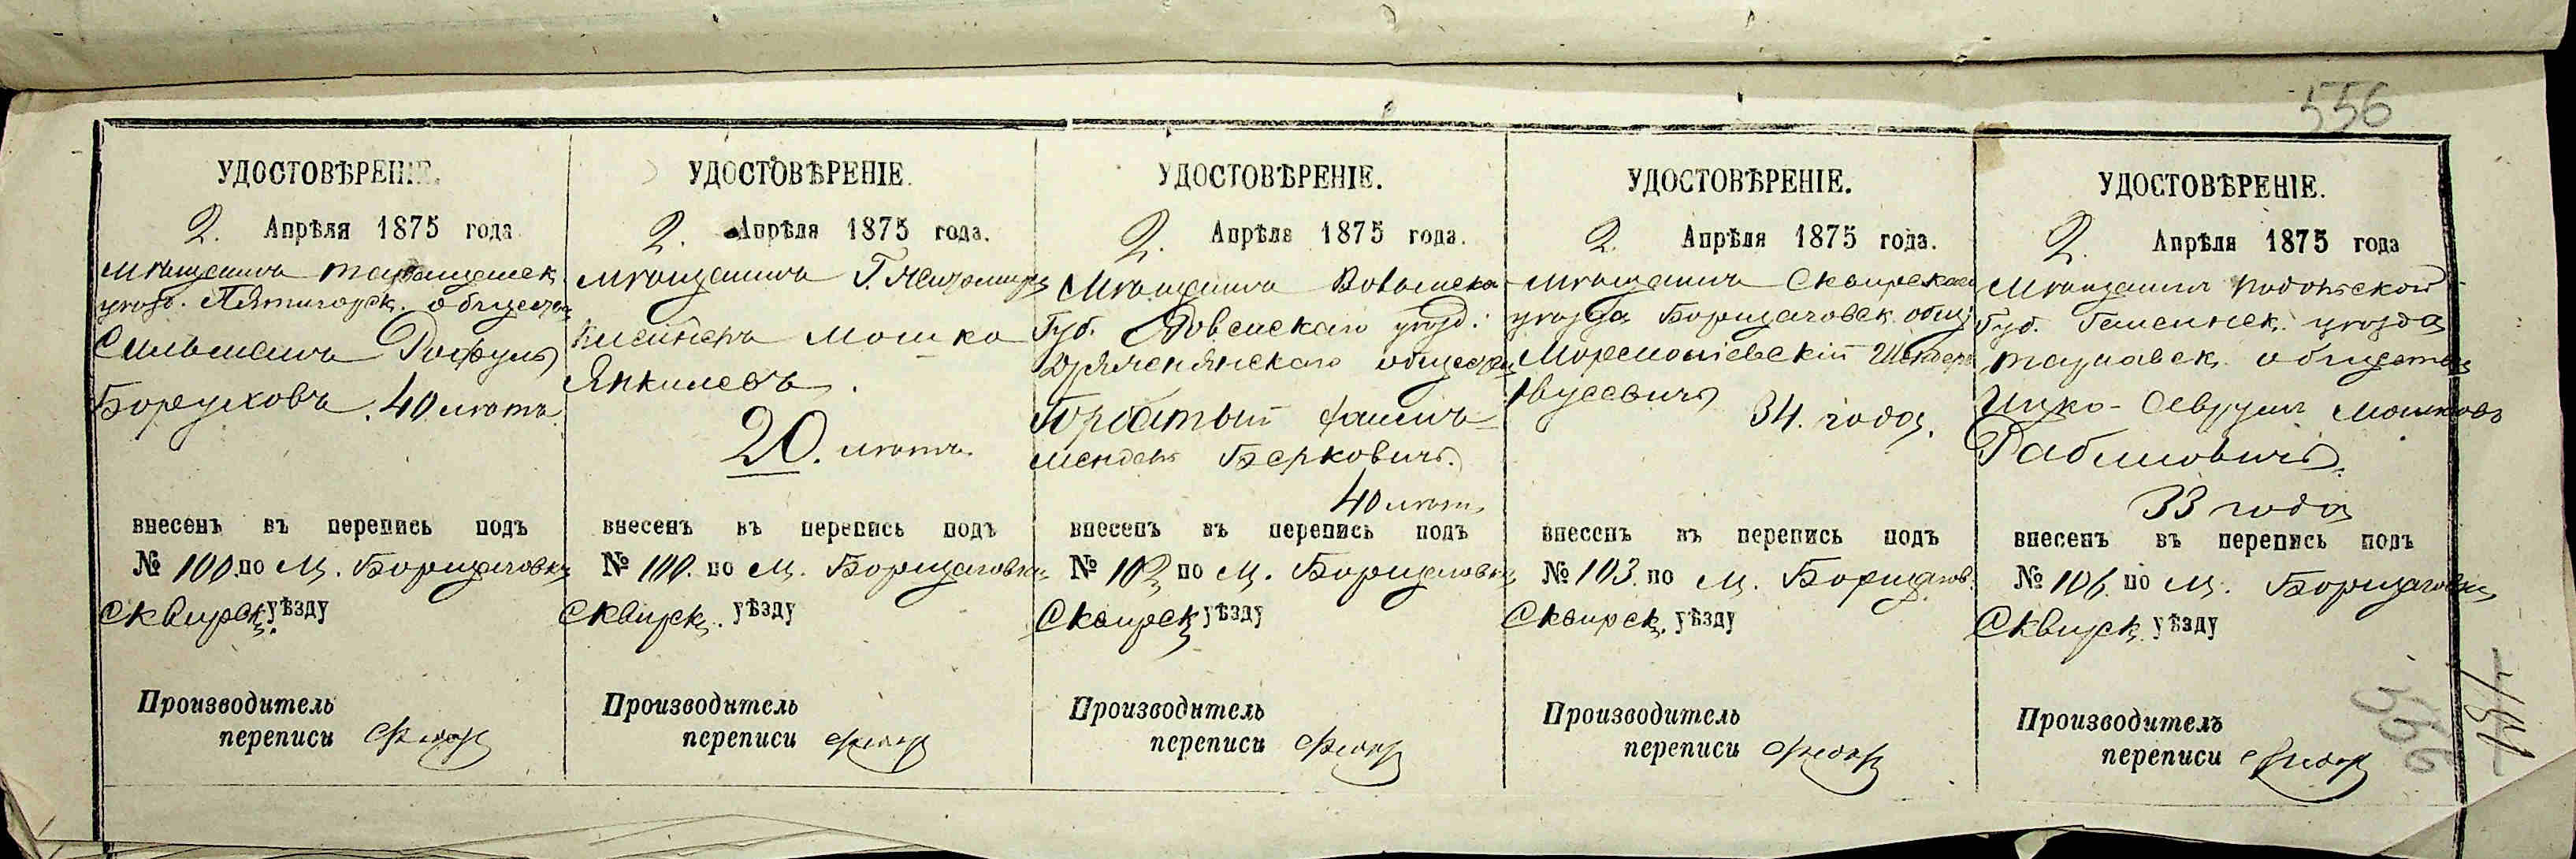 556
УДОСТОВѢРЕНІЕ.
2. Апрѣля 1875 года
мѣщанинъ таращанск.
уѣзд. Пятигорск. общества
Сильманъ Рафулъ
Боруховъ. 40 лѣтъ.
внесенъ въ перепись подъ
№ 100. по м. Борщаговкѣ
Сквирск. уѣзду
Производитель
переписи
УДОСТОВѢРЕНІЕ.
2. Апрѣля 1875 года.
мѣщанинъ Г.
Мошко
Янкилевъ.
20. лѣтъ.
внесенъ въ перепись подъ
№ 100. по м. Борщаговкѣ
Сквирск. уѣзду
Производитель
переписи
УДОСТОВѢРЕНІЕ.
2. Апрѣля 1875 года.
Мѣщанинъ Волынско
Губ. Ровенскаго уѣзд.
общества
Горбатый
мендель Берковичъ.
40 лѣтъ
внесенъ въ перепись подъ
№ 102 по м. Борщаговкѣ
Сквирск уѣзду
Производитель
переписи
УДОСТОВѢРЕНІЕ.
2. Апрѣля 1875 года.
мѣщанинъ Сквирскаго
уѣзда Борщаговск. общ.
34. года.
внесенъ въ перепись подъ
№ 103. по м. Борщагов.
Сквирск. уѣзду
Производитель
переписи
УДОСТОВѢРЕНІЕ.
2. Апрѣля 1875 года
Мѣщанинъ Подольской
Губ. Гайсинск. уѣзда
общества
Ицко- Мошковъ
Рабиновичъ.
33 года
внесенъ въ перепись подъ
№ 106. по м. Борщаговкѣ
Сквирск уѣзду
Производитель
переписи
556